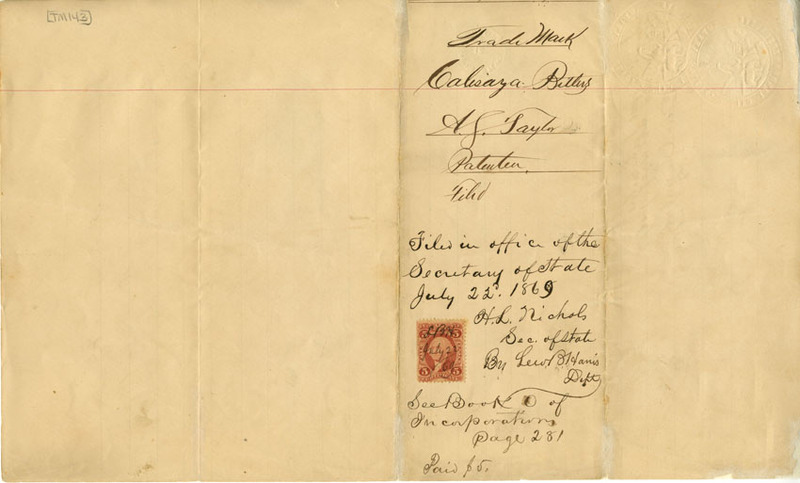 [TM143]
Trade Mark
Calisaya Bitters
A. J. Taylor
Patentee
Filed
Filed in office of the
Secretary of State
July 22. 1869
H. L. Nichols
Sec. of State
By Lew B Harris
Dept
See Book of
Incorporations
Page 281
Paid $5.
5 5